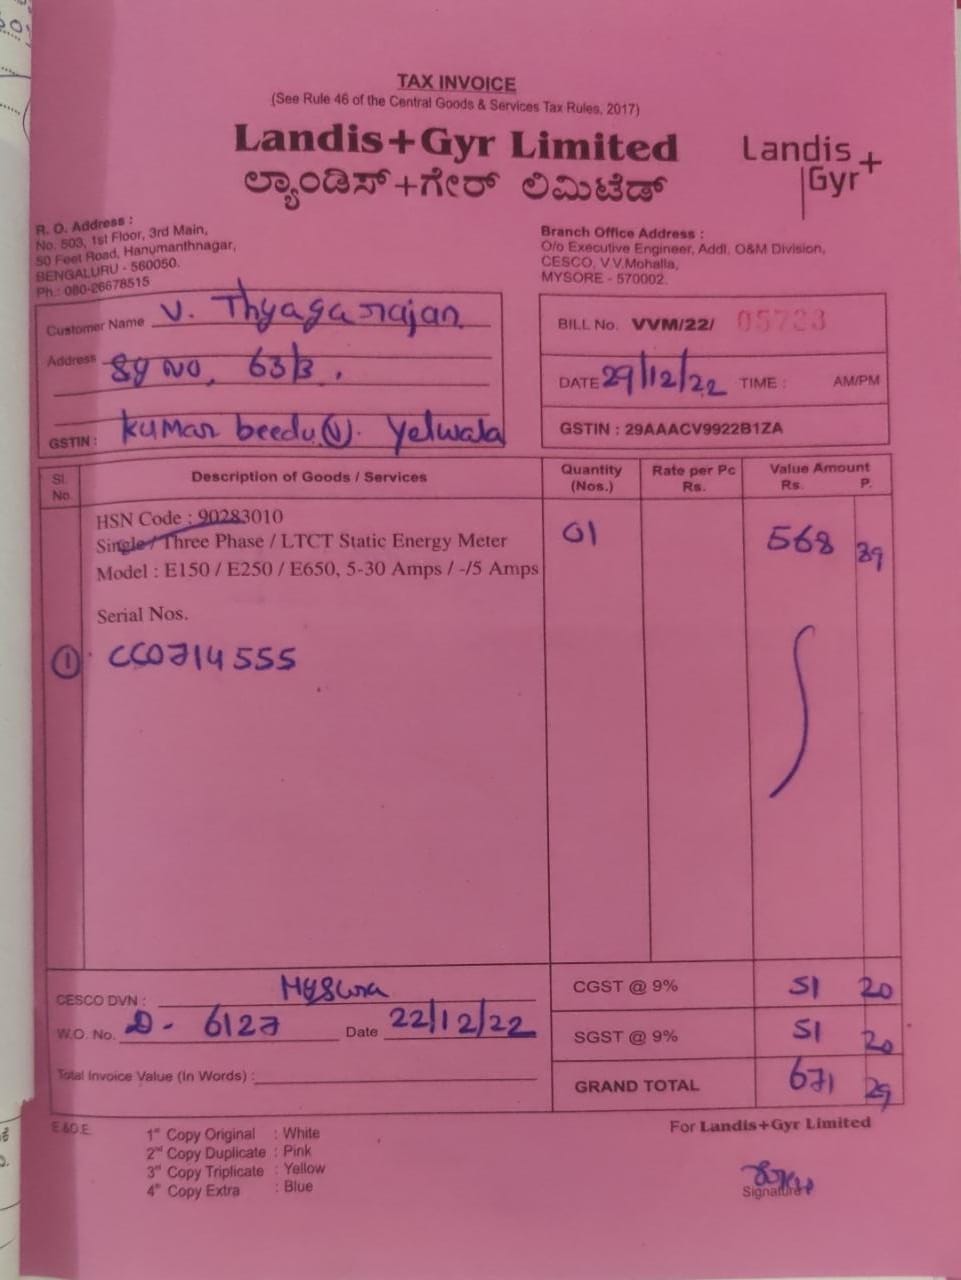 TAX INVOICE
(See Rule 46 of the Central Goods & Services Tax Rules, 2017)
Landis+Gyr Limited
ಲ್ಯಾಂಡಿಸ್+ಗೇರ್ ಲಿಮಿಟೆಡ್
Landis
Gyr+
R. O. Address :
No. 503, 1st Floor, 3rd Main,
50 Feet Road, Hanumanthnagar,
BENGALURU - 560050.
Ph.: 080-26678515
Branch Office Address :
O/o Executive Engineer, Addl. O&M Division,
CESCO, V.V.Mohalla,
MYSORE - 570002.
Customer Name V. Thyagarajan
Address Sy NO, 63/3.
GSTIN : Kumar beedu (V). Yelwala
BILL No. VVM/22/ 05723
DATE 29/12/22 TIME : AM/PM
GSTIN : 29AAACV9922B1ZA
Sl. No. Description of Goods / Services Quantity (Nos.) Rate per Pc Rs. Value Amount Rs. P.
HSN Code : 90283010
Single / Three Phase / LTCT Static Energy Meter 01 568 39
Model : E150 / E250 / E650, 5-30 Amps / -/5 Amps
Serial Nos.
1 CC0714555
CESCO DVN : Mysura
W.O. No. D- 6127 Date 22/12/22
Total Invoice Value (In Words) :
CGST @ 9% 51 20
SGST @ 9% 51 20
GRAND TOTAL 671 29
E.&O.E.
1st Copy Original : White
2nd Copy Duplicate : Pink
3rd Copy Triplicate : Yellow
4th Copy Extra : Blue
For Landis+Gyr Limited
Signature